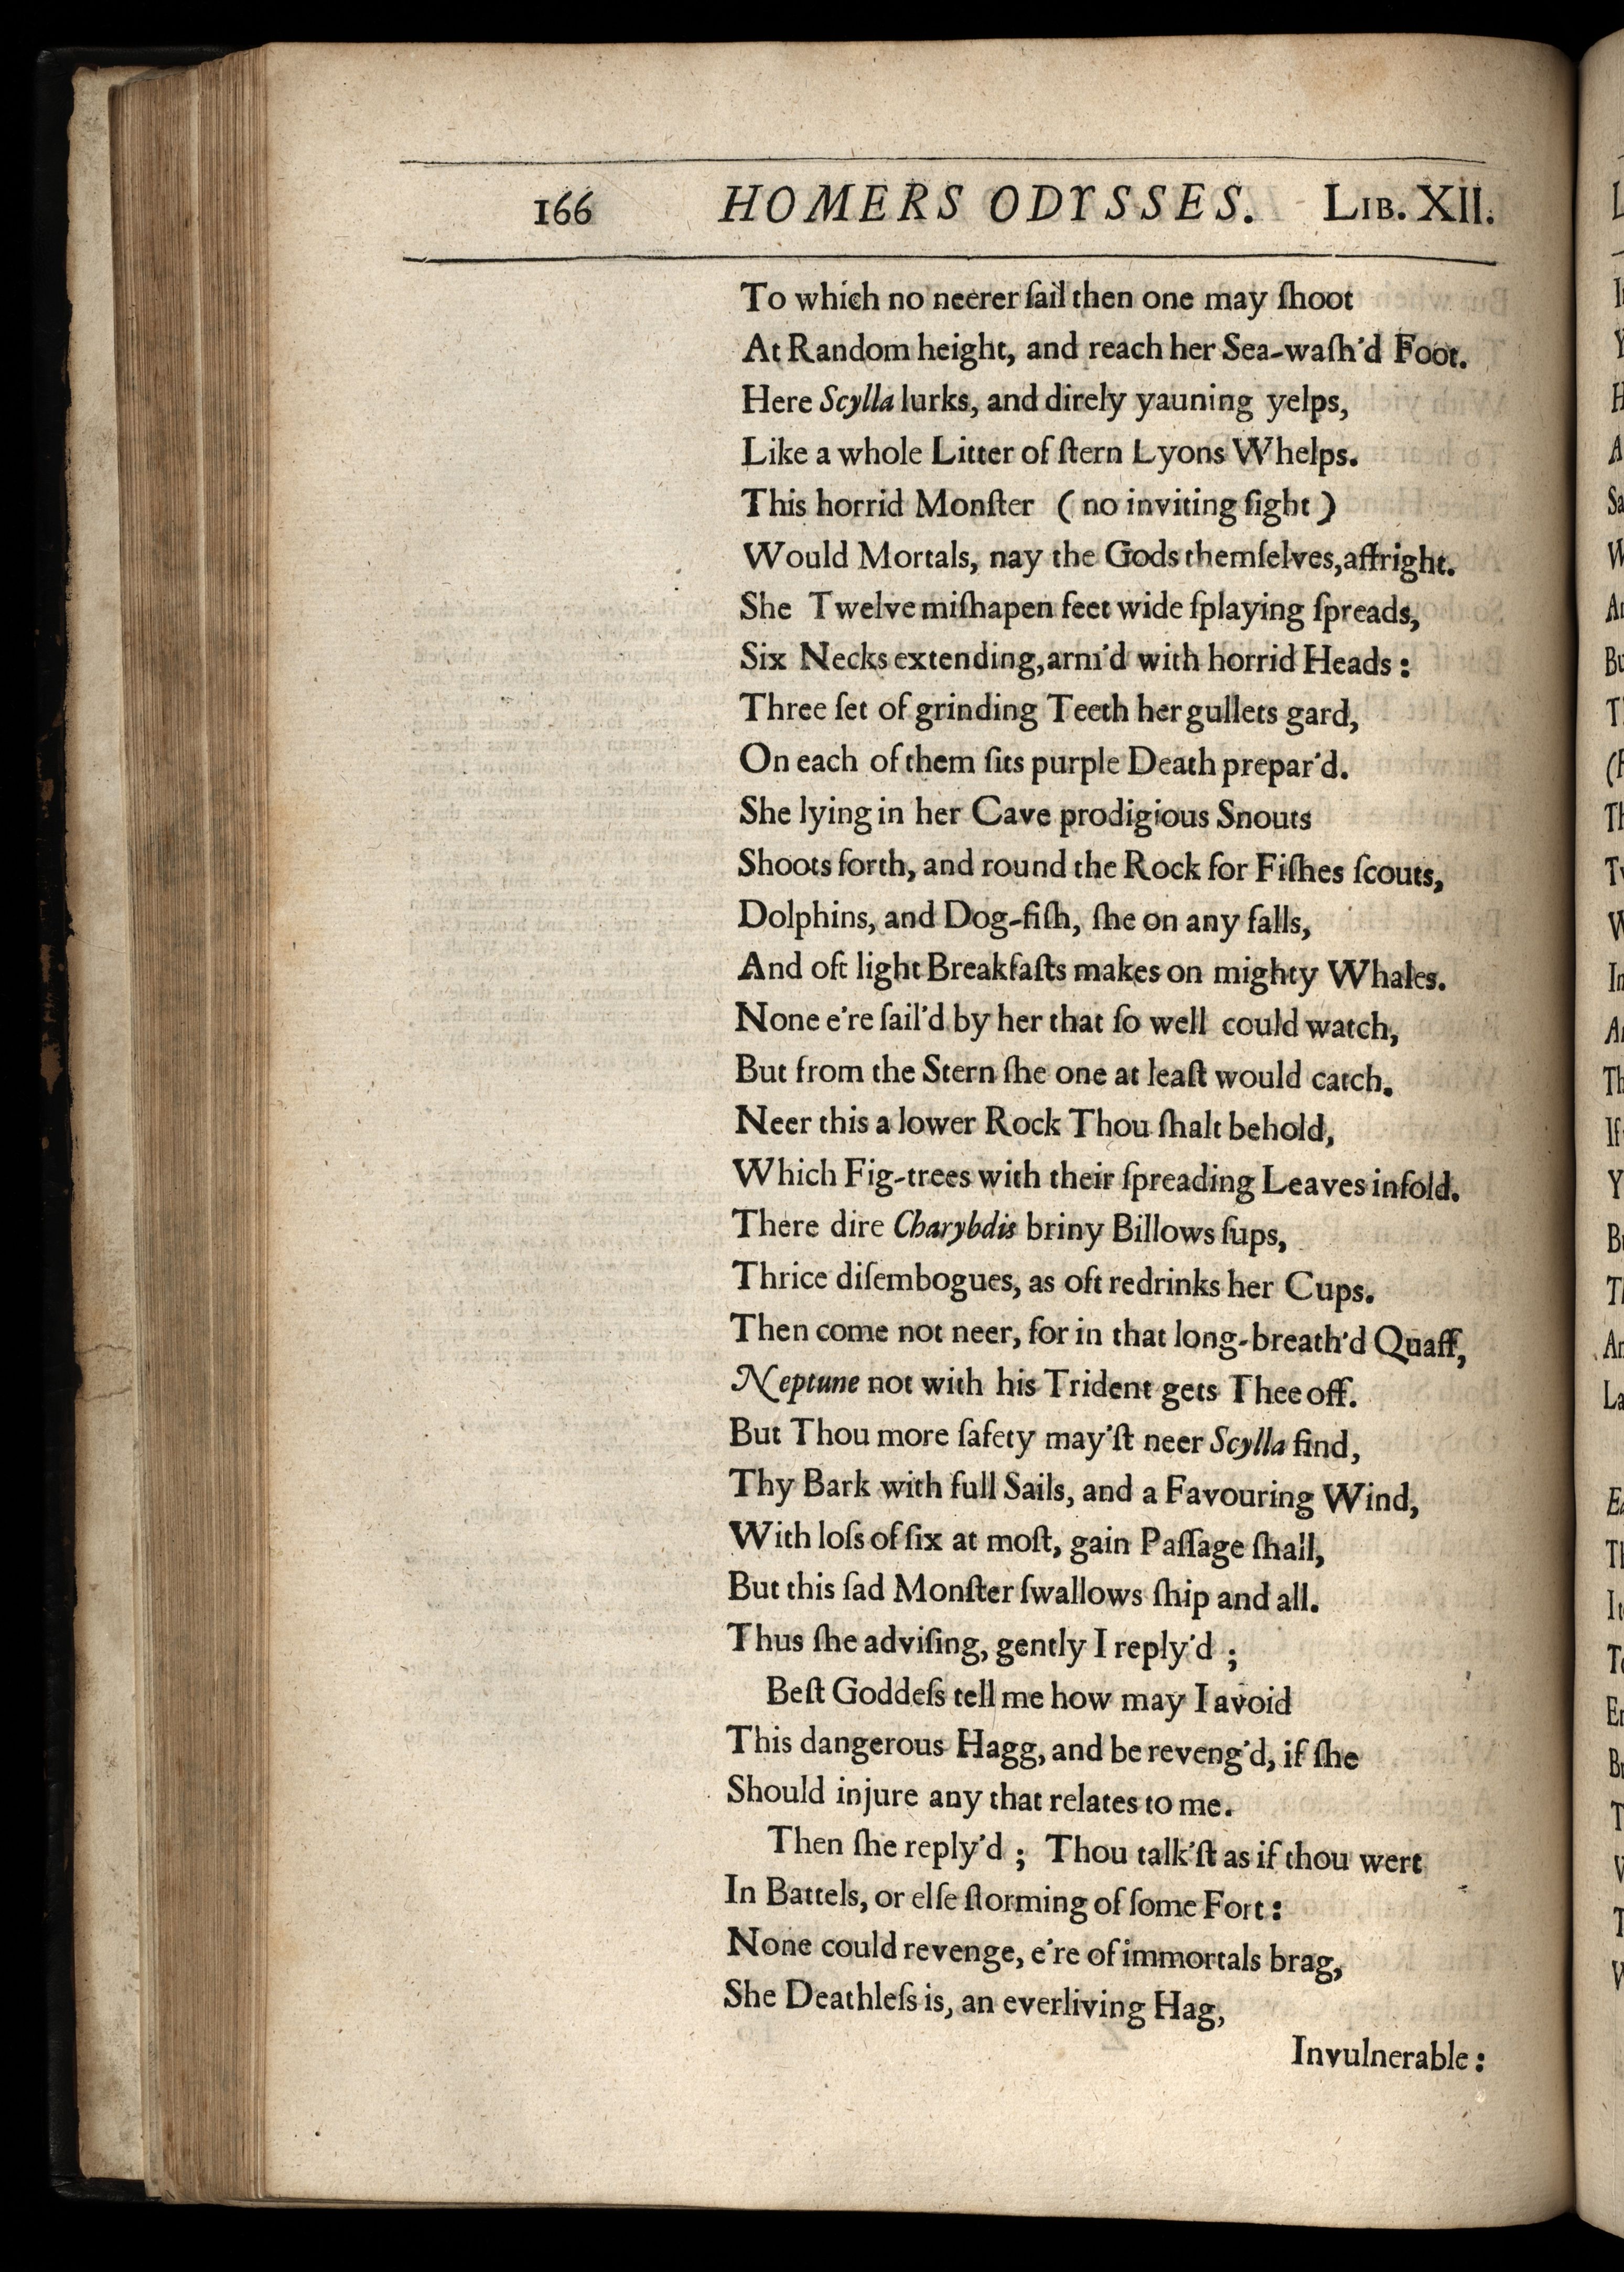 166 HOMERS ODYSSES. LIB. XII.
To which no neerer ſail then one may ſhoot
At Random height, and reach her Sea-waſh'd Foot.
Here Scylla lurks, and direly yauning yelps,
Like a whole Litter of ſtern Lyons Whelps.
This horrid Monſter (no inviting ſight)
Would Mortals, nay the Gods themſelves, affright.
She Twelve miſhapen feet wide ſplaying ſpreads,
Six Necks extending, arm'd with horrid Heads:
Three ſet of grinding Teeth her gullets gard,
On each of them ſits purple Death prepar'd.
She lying in her Cave prodigious Snouts
Shoots forth, and round the Rock for Fiſhes ſcouts,
Dolphins, and Dog-fiſh, ſhe on any falls,
And oft light Breakfaſts makes on mighty Whales.
None e're ſail'd by her that ſo well could watch,
But from the Stern ſhe one at leaſt would catch.
Neer this a lower Rock Thou ſhalt behold,
Which Fig-trees with their ſpreading Leaves infold.
There dire Charybdis briny Billows ſups,
Thrice diſembogues, as oft redrinks her Cups.
Then come not neer, for in that long-breath'd Quaff,
Neptune not with his Trident gets Thee off.
But Thou more ſafety may'ſt neer Scylla find,
Thy Bark with full Sails, and a Favouring Wind,
With loſs of ſix at moſt, gain Paſſage ſhall,
But this ſad Monſter ſwallows ſhip and all.
Thus ſhe adviſing, gently I reply'd ;
Beſt Goddeſs tell me how may I avoid
This dangerous Hagg, and be reveng'd, if ſhe
Should injure any that relates to me.
Then ſhe reply'd ; Thou talk'ſt as if thou wert
In Battels, or elſe ſtorming of ſome Fort:
None could revenge, e're of immortals brag,
She Deathleſs is, an everliving Hag,
Invulnerable: